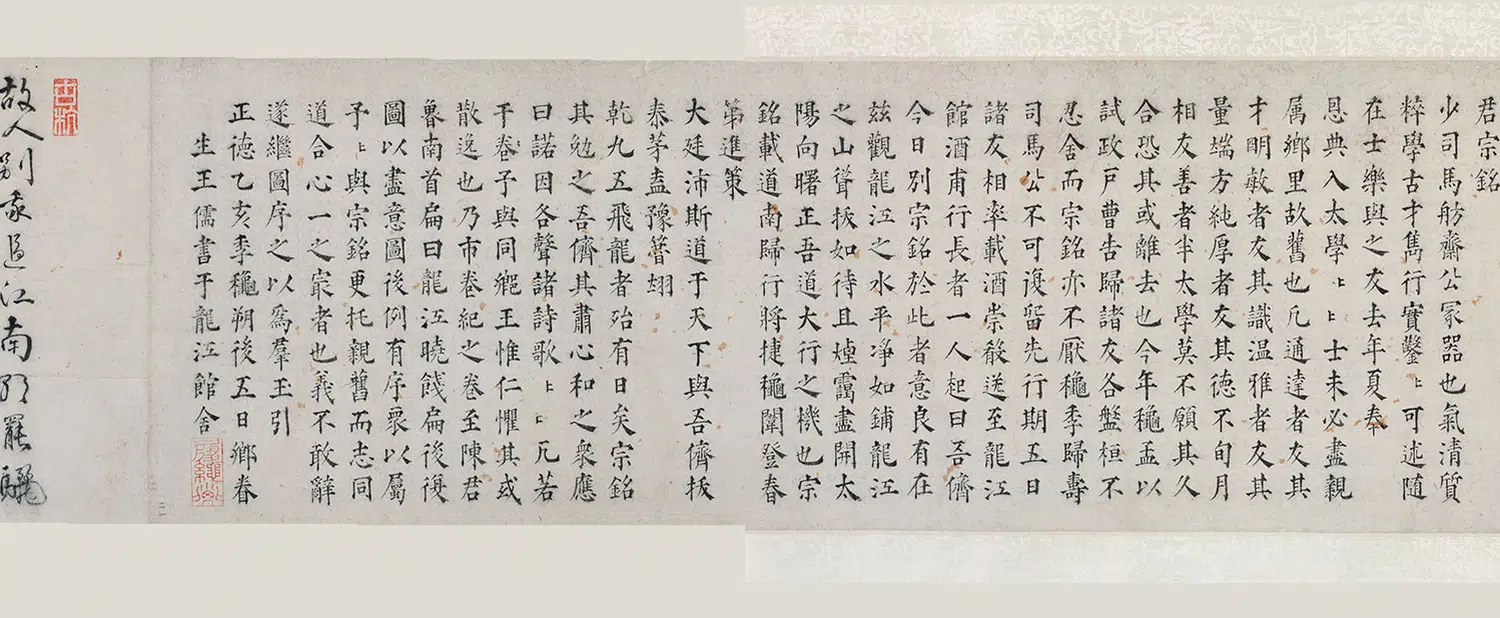 君宗銘
少司馬舫齋公冢器也氣清質
粹學古才雋行實鑿〻可述隨
在士樂與之友去年夏奉
恩典入太學〻〻士未必盡親
属鄉里故舊也凡通達者友其
才明敏者友其識温雅者友其
量端方純厚者友其德不旬月
相友善者半太學莫不願其久
合恐其或離去也今年龝孟以
試政戸曹告歸諸友各盤桓不
忍舍而宗銘亦不厭龝季歸壽
司馬公不可復留先行期五日
諸友相率載酒崇殽送至龍江
館酒甫行長者一人起曰吾儕
今日別宗銘於此者意良有在
兹觀龍江之水平凈如鋪龍江
之山聳拔如待且煙靄盡開太
陽向曙正吾道大行之機也宗
銘載道南歸行將捷龝闈登春
第進策
大廷沛斯道于天下與吾儕拔
泰茅盍豫簪翃
乾九五飛龍者殆有日矣宗銘
其勉之吾儕其肅心和之衆應
曰諾因各聲諸詩歌〻〻凡若
干卷予與同鄉王惟仁懼其或
散逸也乃市卷紀之卷至陳君
魯南首扁曰龍江曉餞扁後復
圖以盡意圖後例有序衆以屬
予〻與宗銘更托親舊而志同
道合心一之宲者也義不敢辭
遂繼圖序之以爲羣玉引
正德乙亥季龝朔後五日鄉眷
生王儒書于龍江館舍
故人別我過江南
罷